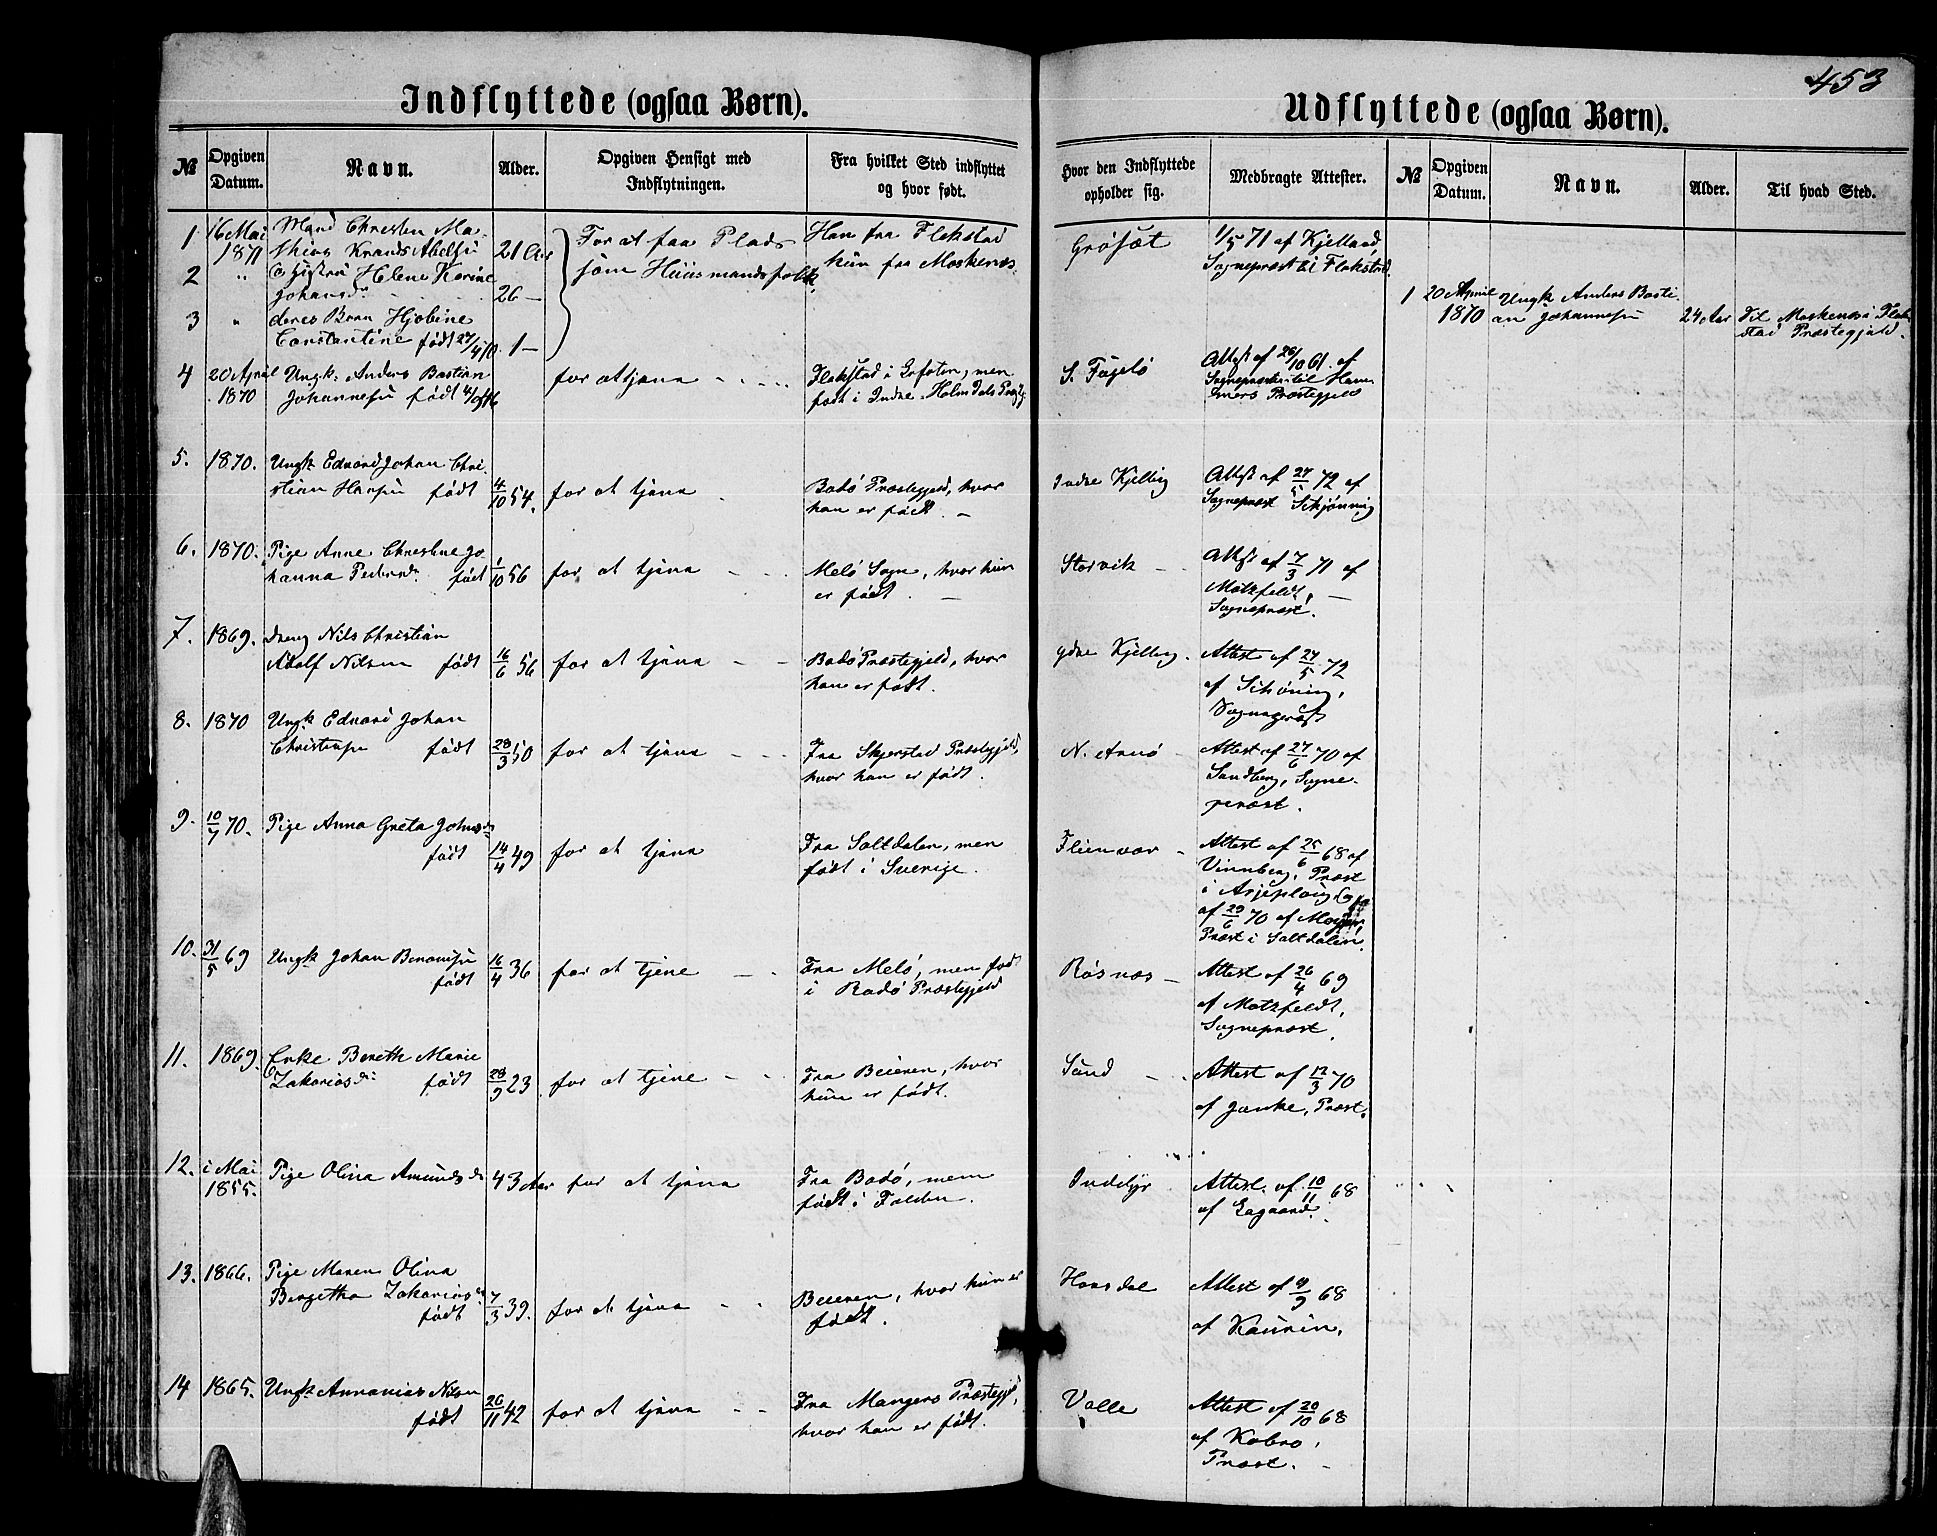 453
Indflyttede (ogsaa Børn).
Udflyttede (ogsaa Børn).
№ Opgiven Datum. Navn. Alder. Opgiven Hensigt med Indflytningen. Fra hvilket Sted indflyttet og hvor født. Hvor den Indflyttede opholder sig. Medbragte Attester.
№ Opgiven Datum. Navn. Alder. Til hvad Sted.
1 16 Mai 1871 Mand Christen Ma-
thias Krands Abelsen 21 Aar For at faa Plads Han fra Flakstad Grøsæt 1/5 71 af Kjelland
2 " og Hustru Helene Karine som Huusmandsfolk, hun fra Moskenæs. Sognepræst til Flakstad.
Johansdr 26 —
3 " deres Barn Hjobine
Constantine født 27/4 70. 1 —
4 20 April 1870 Ungk. Anders Bastian for at tjene Flakstad i Lofoten, men S. Fugelø Attest af 26/10 61. af
Johannesen født født i Indre Holmedals Sognepræsten til Hammers Præstegjeld
5. 1870. Ungk Edvard Johan Chri-
stian Hansen født 4/10 54. for at tjene Bodø Præstegjeld, hvor Indre Kjelling Attest af 27/5 72 af
han er født. — Sognepræst Schjønning
6. 1870. Pige Anne Christine Jo-
hanna Pedersdr. født 1/10 56 for at tjene Melø Sogn, hvor hun Storvik Attest af 7/3 71 af
er født. — Motzfeldt, —
Sognepræst.
7. 1869. Dreng Nils Christian
Adolf Nilsen født 16/6 56 for at tjene Bodø Præstegjeld, hvor Ydre Kjelling. Attest af 27/5 72
han er født. af Schøning,
Sognepræst
8. 1870 Ungk. Edvard Johan
Christensen født 28/3 50 for at tjene Fra Skjerstad Præstegjeld, N. Arnø Attest af 27/6 70 af
hvor han er født. Sandberg, Sogne-
præst.
9. 10/7 70. Pige Anna Greta Johnsdr
født 14/4 49 for at tjene Fra Saltdalen, men Fleinvær Attest af 25/6 68 af
født i Sverige. Vinnberg, Præst
i Arjeploug og
af 29/6 70 af
Præst i Saltdalen.
10. 31/5 69 Ungk Johan Benonisen
født 16/4 36 for at tjene Fra Melø, men født Røsnæs Attest af 26/4 69
i Bodø Præstegjeld af Motzfeldt,
Sognepræst.
11. 1869. Enke Bereth Marie
Zakariasdr. født 28/9 23 for at tjene Fra Beieren, hvor Sund Attest af 12/3 70
hun er født. af Janke, Præst.
12. i Mai 1855. Pige Olina Amundsdr 43 Aar for at tjene Fra Bodø, men Inddyr Attest af 10/11 68
født i Folden. af Eegaard.
13. 1866. Pige Maren Olina
Bergetha Zakariasdr
født 7/3 39. for at tjene Beieren, hvor hun er Horsdal Attest af 9/9 68
født. af Kaurin.
14 1865. Ungk Annanias Nilsen
født 26/11 42 for at tjene Fra Mangers Præstegjd, Valle Attest af 20/10 68
hvor han er født. af Kobro,
Præst. —
1 20 April 1870 Ungk Anders Basti-
an Johannesen 24 Aar Til Moskenæs i Flak-
stad Præstegjeld.